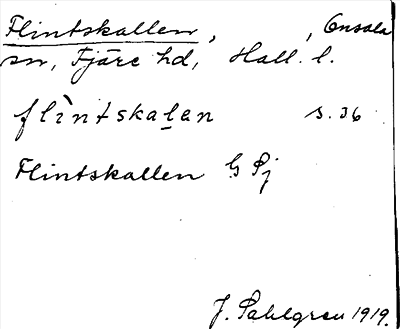 Flintskallen, , Onsala
sn, Fjäre hd, Hall. l.
flìntskalen s. 36
Flintskallen G Pj
J. Sahlgren 1919.